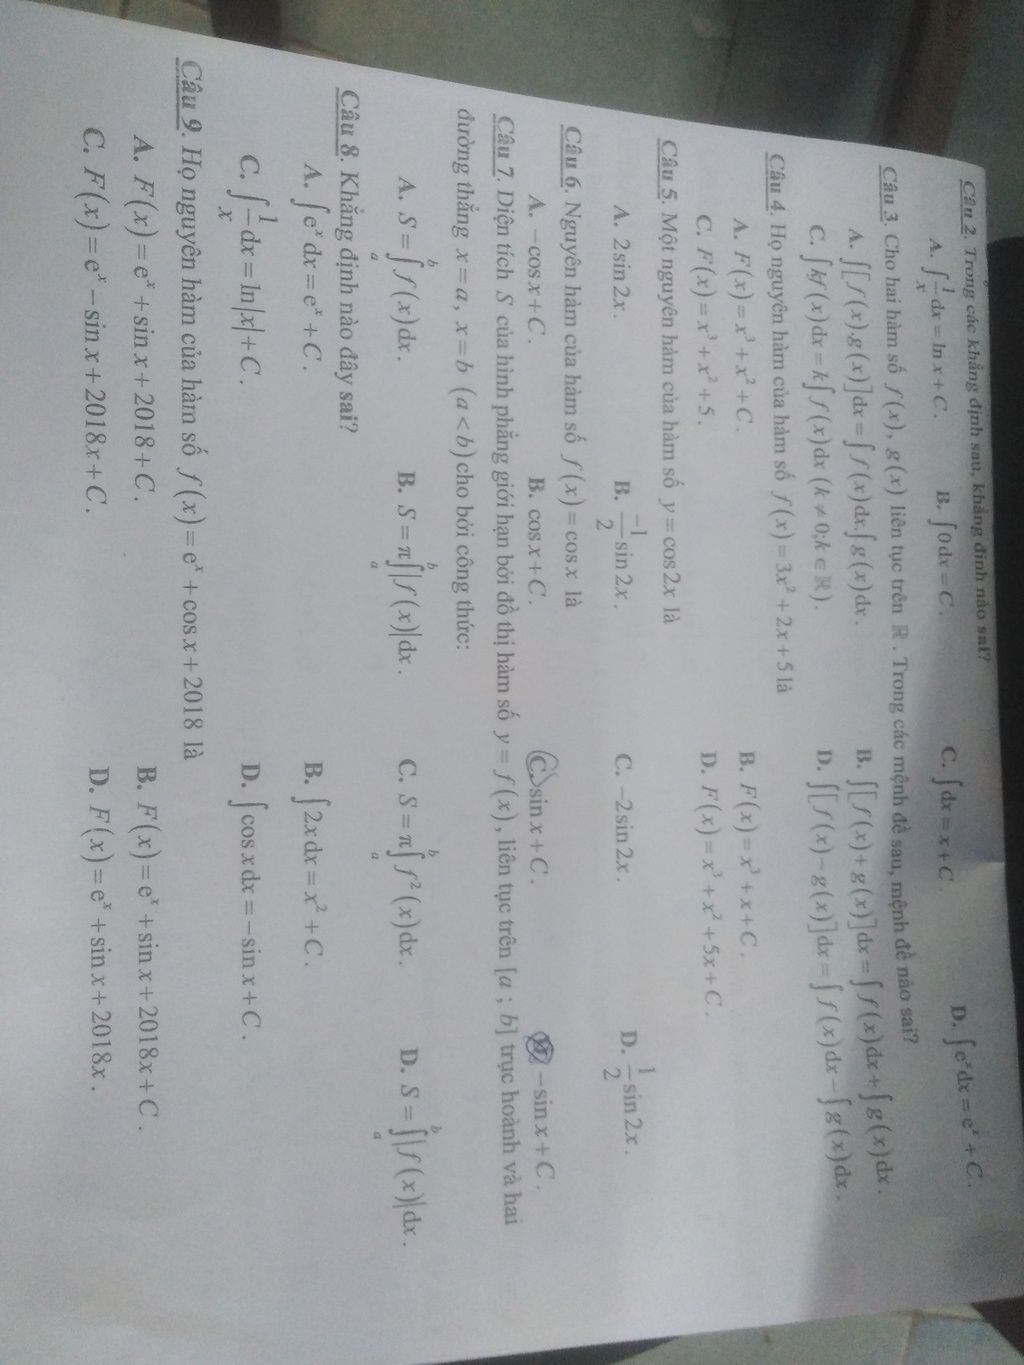 Câu 2. Trong các khẳng định sau, khẳng định nào sai?
A. ∫ 1/x dx = ln x + C. B. ∫ 0 dx = C. C. ∫ dx = x + C. D. ∫ e^x dx = e^x + C.
Câu 3. Cho hai hàm số f(x), g(x) liên tục trên ℝ. Trong các mệnh đề sau, mệnh đề nào sai?
A. ∫[f(x).g(x)]dx = ∫f(x)dx.∫g(x)dx. B. ∫[f(x)+g(x)]dx = ∫f(x)dx + ∫g(x)dx.
C. ∫kf(x)dx = k∫f(x)dx (k ≠ 0; k ∈ ℝ). D. ∫[f(x)−g(x)]dx = ∫f(x)dx − ∫g(x)dx.
Câu 4. Họ nguyên hàm của hàm số f(x) = 3x² + 2x + 5 là
A. F(x) = x³ + x² + C. B. F(x) = x³ + x + C.
C. F(x) = x³ + x² + 5. D. F(x) = x³ + x² + 5x + C.
Câu 5. Một nguyên hàm của hàm số y = cos 2x là
A. 2sin 2x. B. −1/2 sin 2x. C. −2sin 2x. D. 1/2 sin 2x.
Câu 6. Nguyên hàm của hàm số f(x) = cos x là
A. −cos x + C. B. cos x + C. C. sin x + C. D. −sin x + C.
Câu 7. Diện tích S của hình phẳng giới hạn bởi đồ thị hàm số y = f(x), liên tục trên [a ; b] trục hoành và hai
đường thẳng x = a, x = b (a < b) cho bởi công thức:
A. S = ∫_a^b f(x)dx. B. S = π∫_a^b |f(x)|dx. C. S = π∫_a^b f²(x)dx. D. S = ∫_a^b |f(x)|dx.
Câu 8. Khẳng định nào đây sai?
A. ∫ e^x dx = e^x + C. B. ∫ 2x dx = x² + C.
C. ∫ 1/x dx = ln|x| + C. D. ∫ cos x dx = −sin x + C.
Câu 9. Họ nguyên hàm của hàm số f(x) = e^x + cos x + 2018 là
A. F(x) = e^x + sin x + 2018 + C. B. F(x) = e^x + sin x + 2018x + C.
C. F(x) = e^x − sin x + 2018x + C. D. F(x) = e^x + sin x + 2018x.